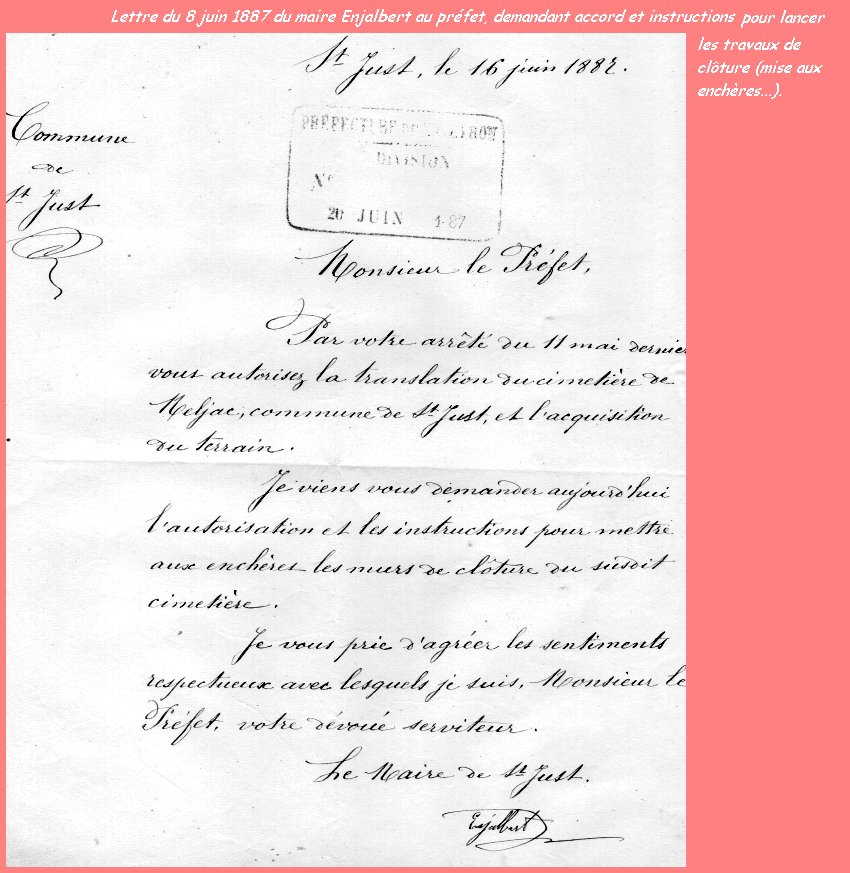 Lettre du 8 juin 1887 du maire Enjalbert au préfet, demandant accord et instructions pour lancer
les travaux de
clôture (mise aux
enchères...).
St Just, le 16 juin 1887.
Commune
de
St Just
PRÉFECTURE DE L'AVEYRON
DIVISION
No
20 JUIN 1887
Monsieur le Préfet,
Par votre arrêté du 11 mai dernier
vous autorisez la translation du cimetière de
Meljac, commune de St Just, et l'acquisition
du terrain.
Je viens vous demander aujourd'hui
l'autorisation et les instructions pour mettre
aux enchères les murs de clôture du susdit
cimetière.
Je vous prie d'agréer les sentiments
respectueux avec lesquels je suis, Monsieur le
Préfet, votre dévoué serviteur.
Le Maire de St Just.
Enjalbert